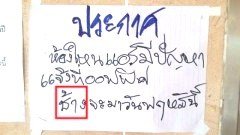 ประกาศ
ห้องไหนแอร์มีปัญหา
แจ้งที่ออฟฟิศ
ช้างจะมาวันพฤหัสนี้